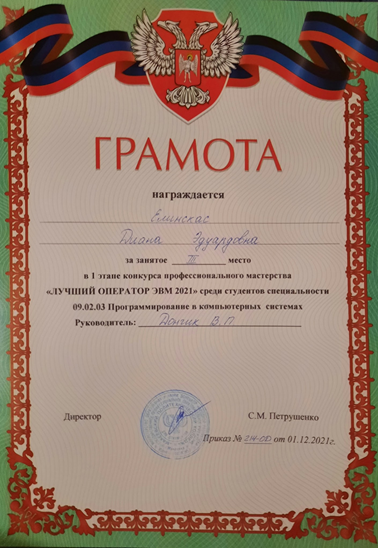 ГРАМОТА
награждается
Елинскас
Диана Эдуардовна
за занятое III место
в 1 этапе конкурса профессионального мастерства
«ЛУЧШИЙ ОПЕРАТОР ЭВМ 2021» среди студентов специальности
09.02.03 Программирование в компьютерных системах
Руководитель: Дончик В.П.
Директор С.М. Петрушенко
Приказ № от 01.12.2021г.